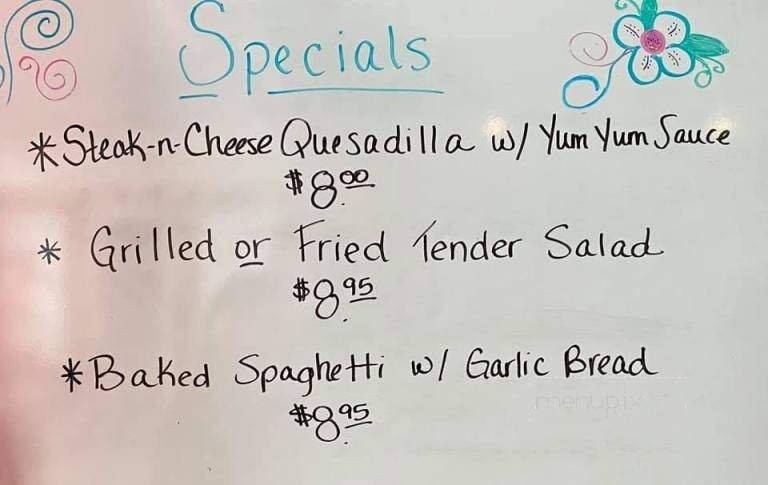 Specials
*Steak-n-Cheese Quesadilla w/ Yum Yum Sauce
$8.00
* Grilled or Fried Tender Salad
$8.95
*Baked Spaghetti w/ Garlic Bread
$8.95
menupix